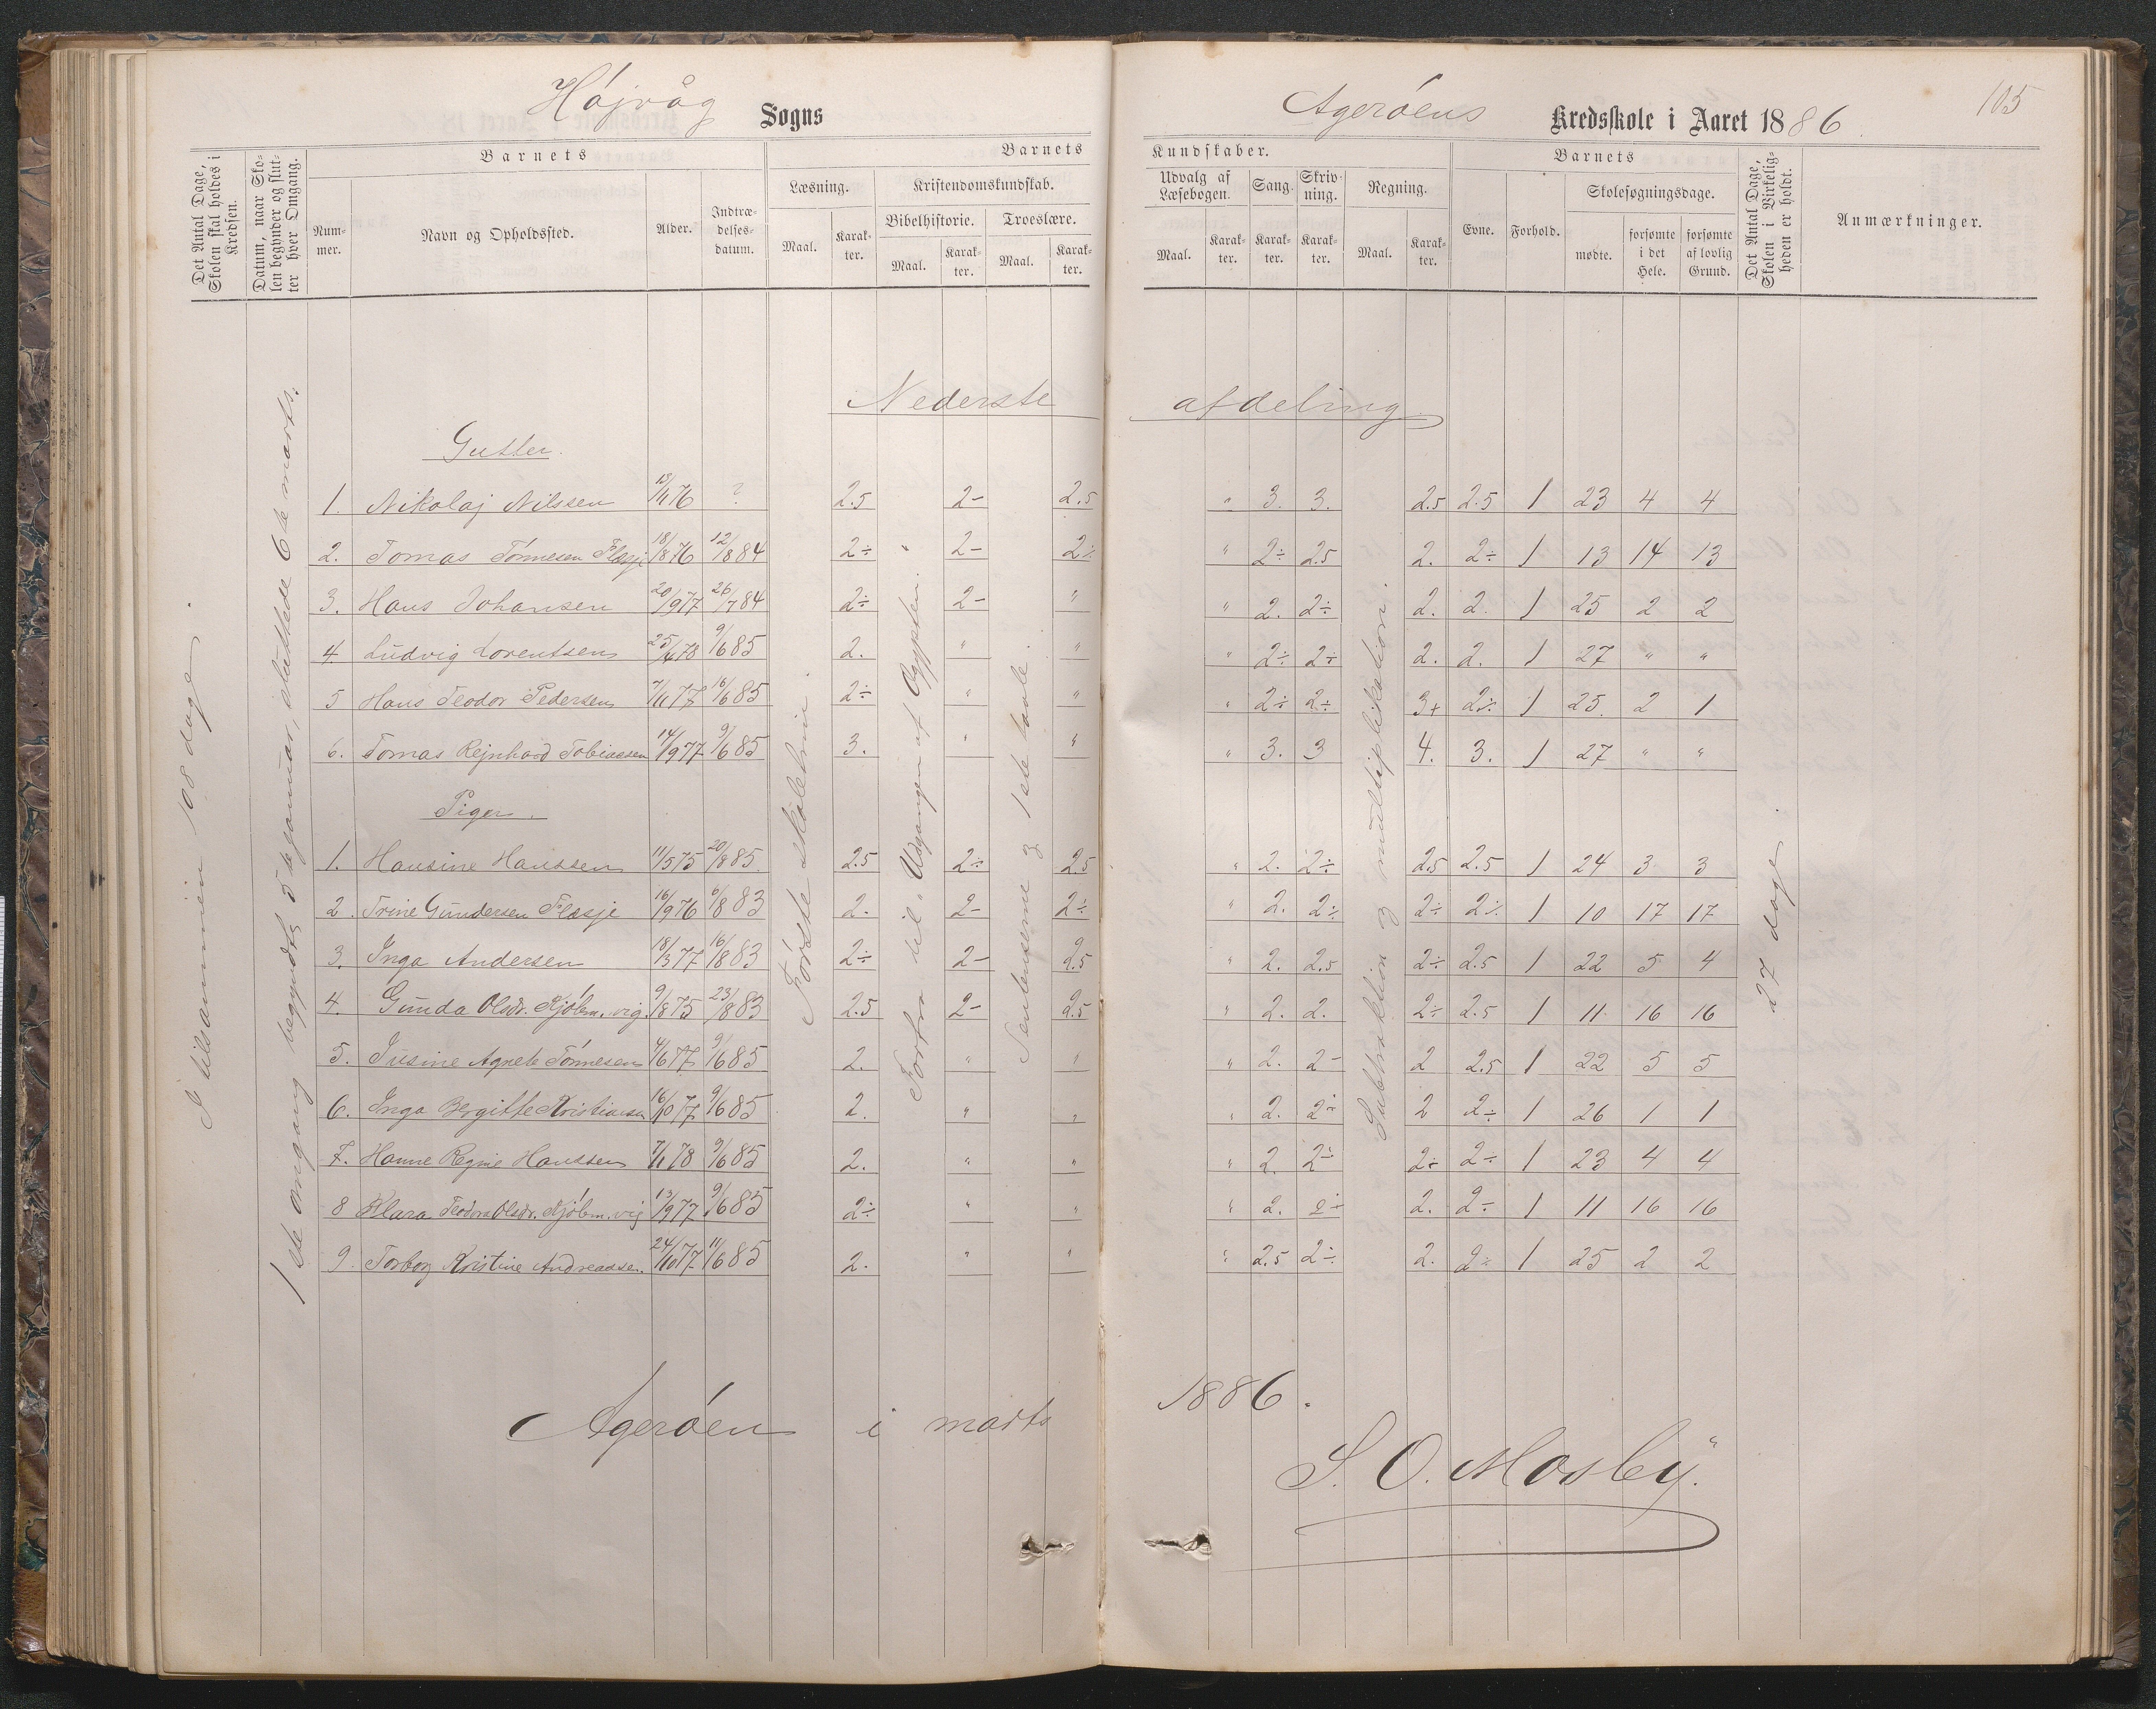 Højvåg Sogns
Agerøens Kredsskole i Aaret 1886. 105
Det Antal Dage, Skolen skal holdes i Kredsen.
Datum, naar Skolen begynder og slutter hver Omgang.
Barnets
Nummer.
Navn og Opholdssted.
Alder.
Indtrædelsesdatum.
Barnets
Læsning.
Maal. Karakter.
Kristendomskundskab.
Bibelhistorie.
Maal. Karakter.
Troeslære.
Maal. Karakter.
Kundskaber.
Udvalg af Læsebogen.
Maal. Karakter.
Sang. Karakter.
Skrivning. Karakter.
Regning.
Maal. Karakter.
Barnets
Evne. Forhold.
Skolesøgningsdage.
mødte. forsømte i det Hele. forsømte af lovlig Grund.
Det Antal Dage, Skolen i Virkeligheden er holdt.
Anmærkninger.
I tilsammen 108 dage.
1ste omgang begyndte 5te januar, sluttede 6te marts.
Nederste afdeling
Første skoletrin.
Fortræ til "Udgangen af Ægypten.
Sentenserne z 1ste tavle.
Subtraktion z multiplikation.
27 dage.
Gutter.
1. Nikolaj Nilssen 13/11 76 ? 2.5 2- 2.5 " 3. 3. 2.5 2.5 1 23 4 4
2. Tomas Tønnesen Flæsje 18/8 76 12/8 84 2÷ 2- 2÷ " 2÷ 2.5 2. 2÷ 1 13 14 13
3. Hans Johansen 20/9 77 26/7 84 2÷ 2- " " 2. 2÷ 2. 2. 1 25 2 2
4. Ludvig Lorentsen 25/4 78 9/6 85 2. " " " 2÷ 2÷ 2. 2. 1 27 " "
5 Hans Teodor Pedersen 7/11 77 16/6 85 2÷ " " " 2÷ 2÷ 3+ 2÷ 1 25. 2 1
6. Tomas Rejnhard Tobiassen 14/9 77 9/6 85 3. " " " 3. 3 4. 3. 1 27 " "
Piger.
1. Hansine Hanssen 11/5 75 20/8 85. 2.5 2÷ 2.5 " 2. 2÷ 2.5 2.5 1 24 3 3
2. Trine Gundersen Flæsje 16/9 76 6/8 83 2. 2- 2÷ " 2. 2÷ 2÷ 2÷ 1 10 17 17
3. Inga Andersen 18/3 77 16/8 83 2÷ 2- 2.5 " 2. 2.5 2÷ 2.5 1 22 5 4
4. Gunda Olsdr. Kjøbm.vig. 9/8 75 23/8 83 2.5 2- 2.5 " 2. 2. 2÷ 2.5 1 11 16 16
5. Jusine Agnete Tønnesen 4/6 77 9/6 85 2. " " " 2. 2- 2 2.5 1 22 5 5
6. Inga Bergitte Kristiansen 16/10 77 9/6 85 2. " " " 2. 2÷ 2 2÷ 1 26 1 1
7. Hanne Regine Hanssen 7/1 78 9/6 85 2. " " " 2. 2÷ 2÷ 2÷ 1 23 4 4
8 Klara Teodora Olsdr. Kjøbm.vig 13/9 77 9/6 85 2÷ " " " 2. 2÷ 2. 2÷ 1 11 16 16
9. Torborg Kristine Andreassen. 24/10 77 11/6 85 2. " " " 2.5 2÷ 2. 2÷ 1 25 2 2
Agerøen i marts 1886.
S. O. Mosby.